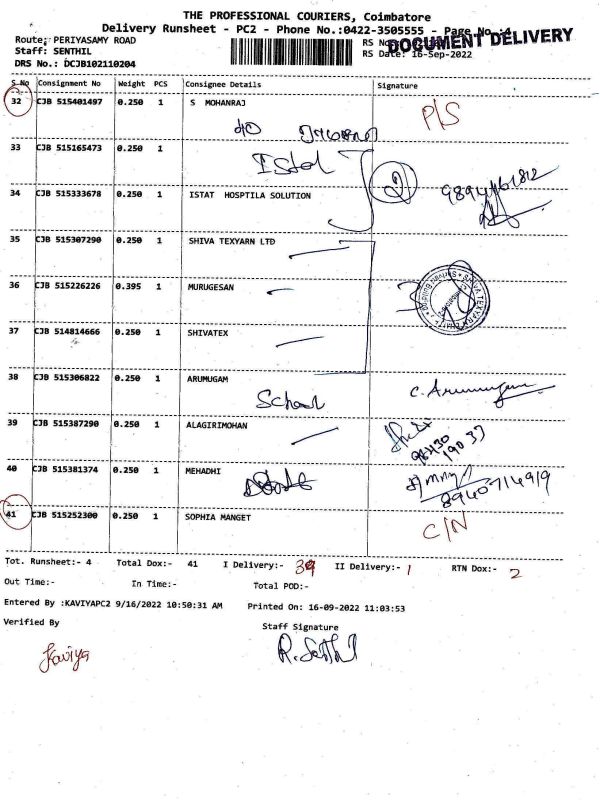 THE PROFESSIONAL COURIERS, Coimbatore
Delivery Runsheet - PC2 - Phone No.:0422-3505555 - Page No.:4
DOCUMENT DELIVERY
Route: PERIYASAMY ROAD
RS No
Staff: SENTHIL
RS Date: 16-Sep-2022
DRS No.: DCJB102110204
S No Consignment No Weight PCS Consignee Details Signature
32 CJB 515401497 0.250 1 S MOHANRAJ P/S
33 CJB 515165473 0.250 1
34 CJB 515333678 0.250 1 ISTAT HOSPTILA SOLUTION
35 CJB 515307290 0.250 1 SHIVA TEXYARN LTD
36 CJB 515226226 0.395 1 MURUGESAN
37 CJB 514814666 0.250 1 SHIVATEX
38 CJB 515306822 0.250 1 ARUMUGAM
School C. Arumugam
39 CJB 515387290 0.250 1 ALAGIRIMOHAN
98430
190 37
40 CJB 515381374 0.250 1 MEHADHI
8940714919
41 CJB 515252300 0.250 1 SOPHIA MANGET C/N
Tot. Runsheet:- 4 Total Dox:- 41 I Delivery:- 39 II Delivery:- 1 RTN Dox:- 2
Out Time:- In Time:- Total POD:-
Entered By :KAVIYAPC2 9/16/2022 10:50:31 AM Printed On: 16-09-2022 11:03:53
Verified By Staff Signature
Kaviya R. Senthil